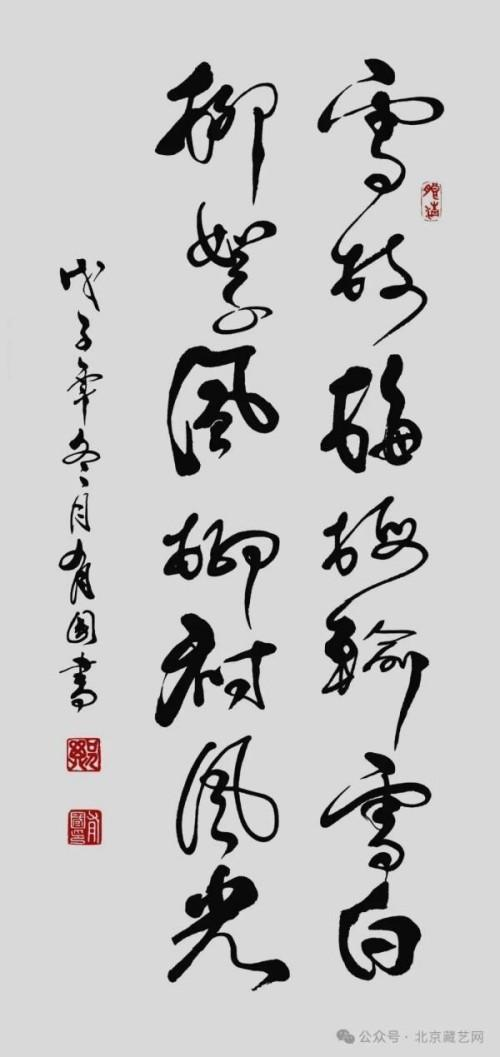 雪枝梅输雪白
柳絮风柳衬风光
戊子年冬月有国書
公众号 · 北京藏艺网